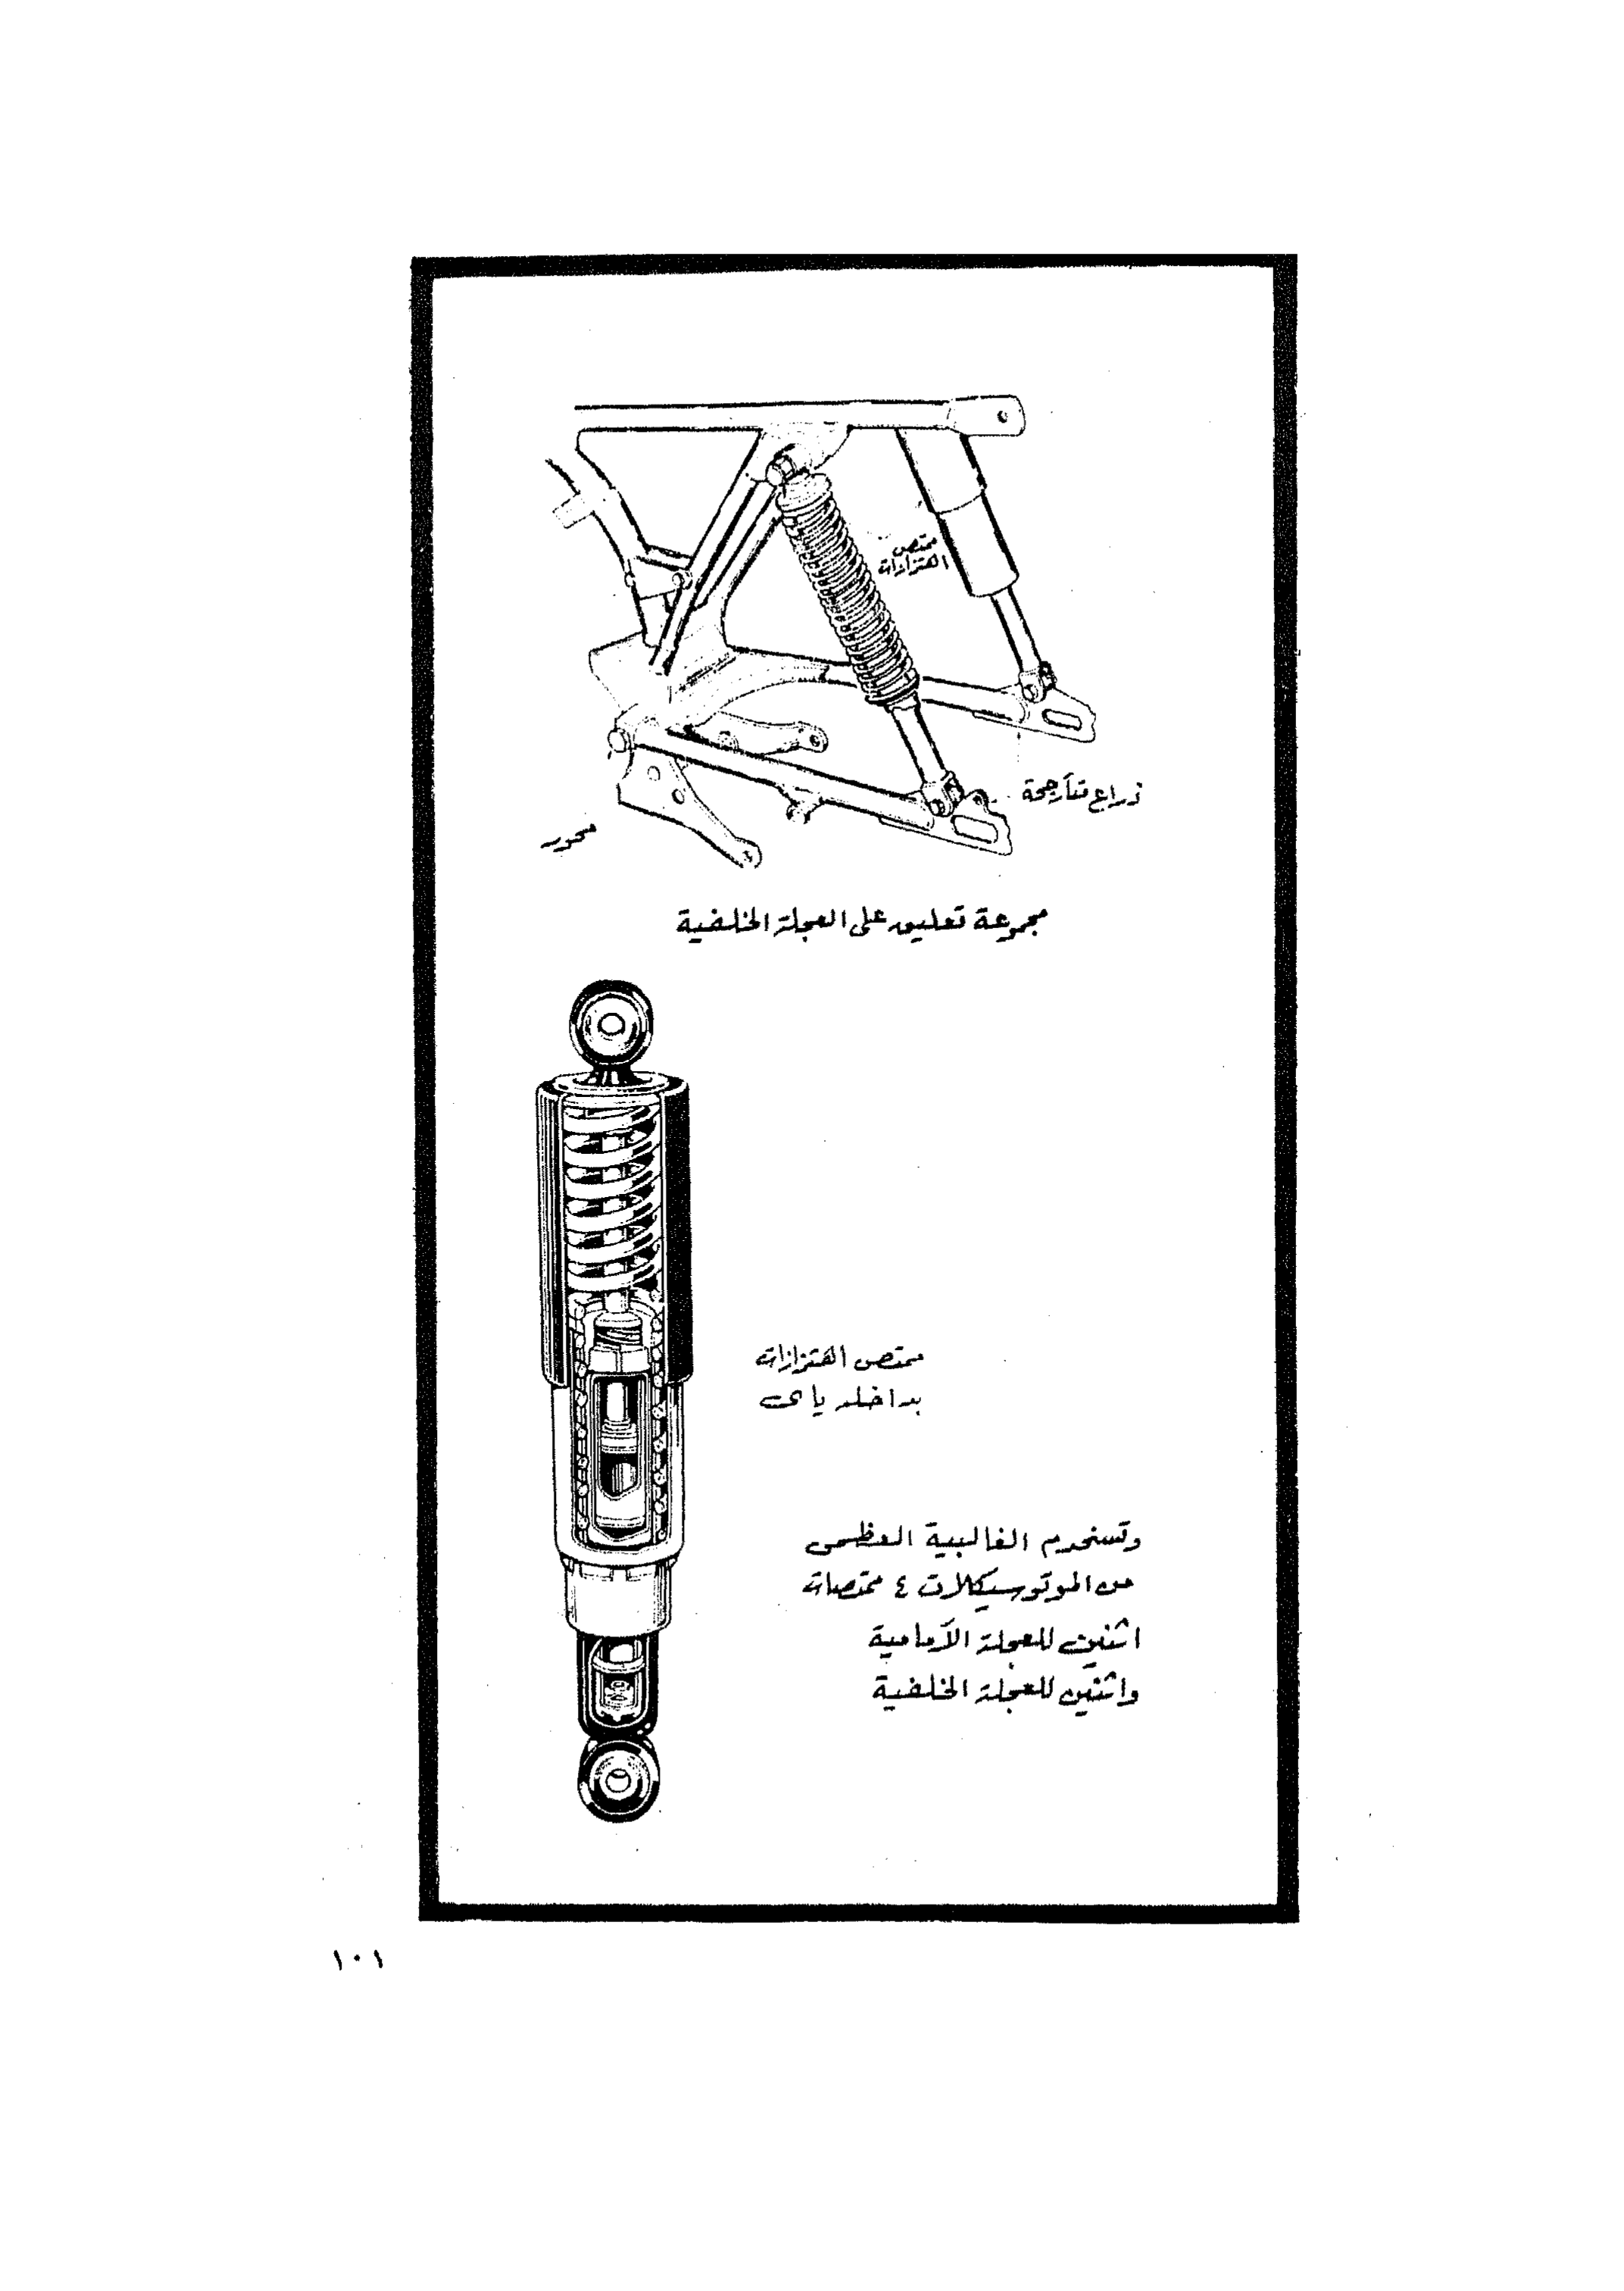 ممتص
الهتزازات
ذراع متأرجحة
محور
مجموعة تعليق على العجلة الخلفية
ممتص الهتزازات
بداخله ياى
وتستخدم الغالبية العظمى
من الموتوسيكلات ٤ ممتصات
اثنين للعجلة الأمامية
واثنين للعجلة الخلفية
١٠١